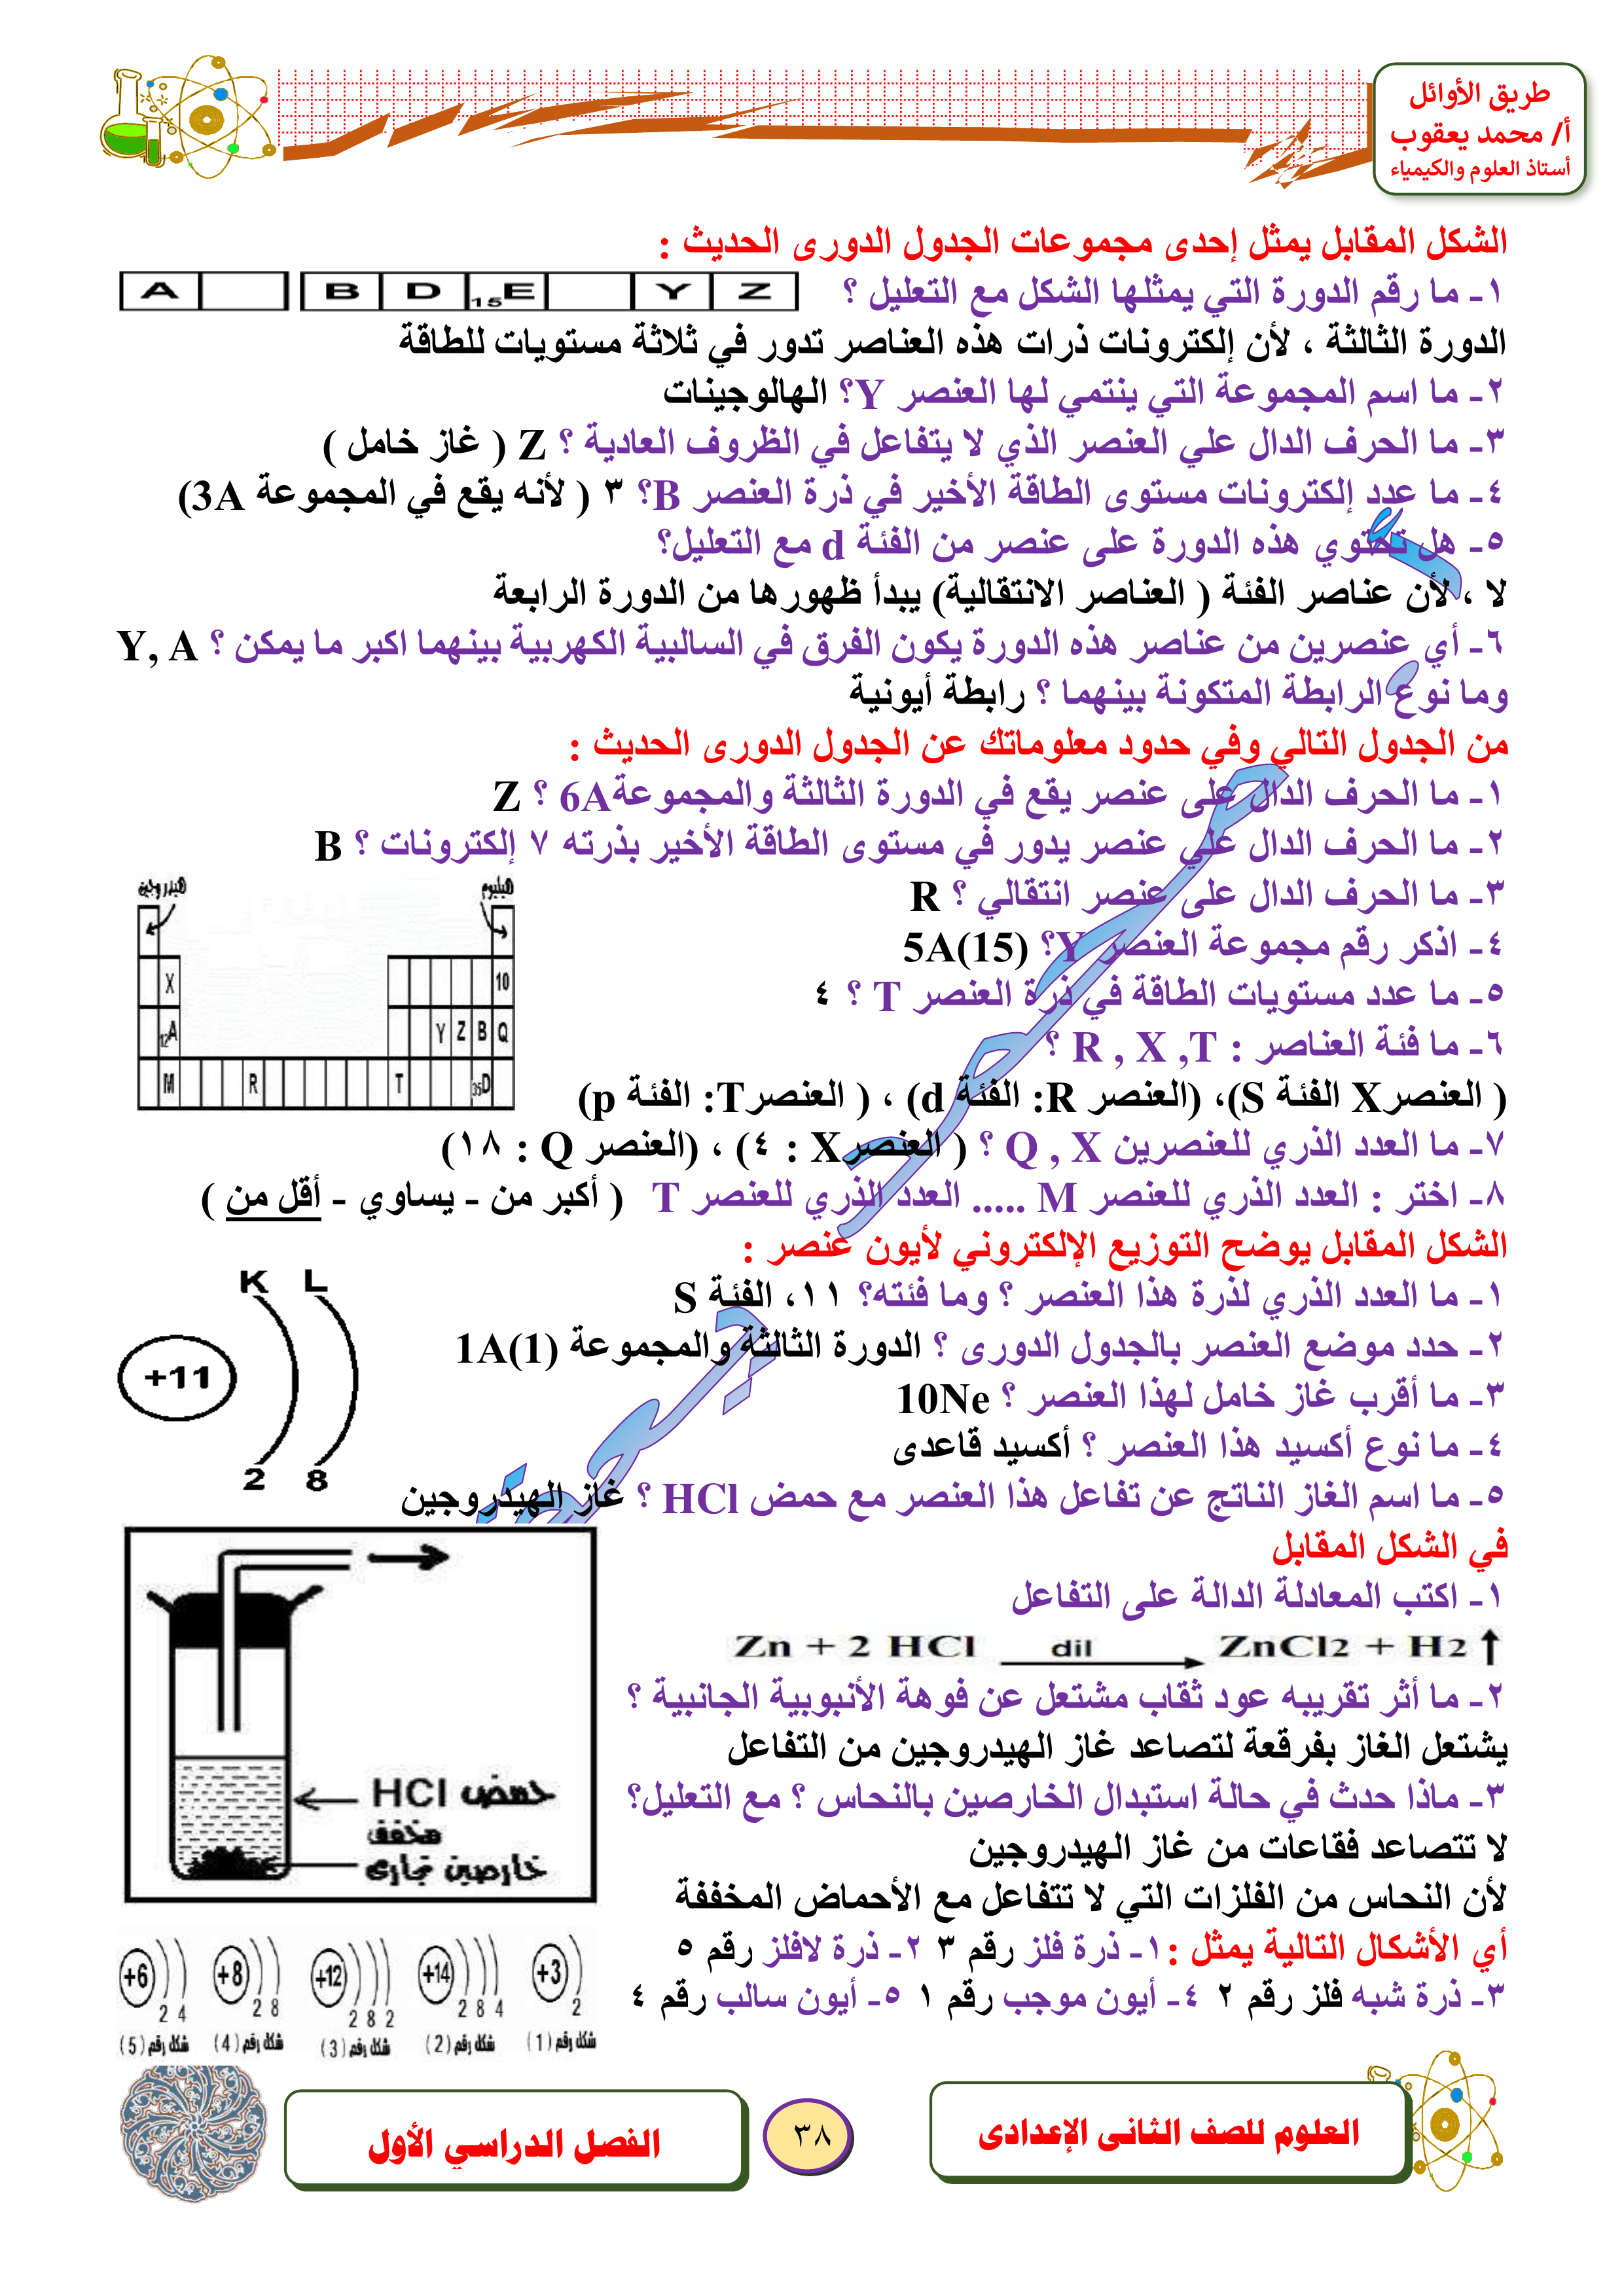 طريق الأوائل
أ/ محمد يعقوب
أستاذ العلوم والكيمياء
الشكل المقابل يمثل إحدى مجموعات الجدول الدورى الحديث :
١- ما رقم الدورة التي يمثلها الشكل مع التعليل ؟
A B D 15E Y Z
الدورة الثالثة ، لأن إلكترونات ذرات هذه العناصر تدور في ثلاثة مستويات للطاقة
٢- ما اسم المجموعة التي ينتمي لها العنصر Y؟ الهالوجينات
٣- ما الحرف الدال علي العنصر الذي لا يتفاعل في الظروف العادية ؟ Z ( غاز خامل )
٤- ما عدد إلكترونات مستوى الطاقة الأخير في ذرة العنصر B؟ ٣ ( لأنه يقع في المجموعة 3A)
٥- هل تحتوي هذه الدورة على عنصر من الفئة d مع التعليل؟
لا ، لأن عناصر الفئة ( العناصر الانتقالية) يبدأ ظهورها من الدورة الرابعة
٦- أي عنصرين من عناصر هذه الدورة يكون الفرق في السالبية الكهربية بينهما اكبر ما يمكن ؟ Y, A
وما نوع الرابطة المتكونة بينهما ؟ رابطة أيونية
من الجدول التالي وفي حدود معلوماتك عن الجدول الدورى الحديث :
١- ما الحرف الدال على عنصر يقع في الدورة الثالثة والمجموعة6A ؟ Z
٢- ما الحرف الدال علي عنصر يدور في مستوى الطاقة الأخير بذرته ٧ إلكترونات ؟ B
٣- ما الحرف الدال على عنصر انتقالي ؟ R
٤- اذكر رقم مجموعة العنصر Y؟ 5A(15)
٥- ما عدد مستويات الطاقة في ذرة العنصر T ؟ ٤
٦- ما فئة العناصر : R , X ,T ؟
هيدروجين هيليوم
X 10
12A Y Z B Q
M R T 35D
( العنصرX الفئة S)، (العنصر R: الفئة d) ، ( العنصرT: الفئة p)
٧- ما العدد الذري للعنصرين Q , X ؟ ( العنصرX : ٤) ، (العنصر Q : ١٨)
٨- اختر : العدد الذري للعنصر M ..... العدد الذري للعنصر T ( أكبر من - يساوي - أقل من )
الشكل المقابل يوضح التوزيع الإلكتروني لأيون عنصر :
١- ما العدد الذري لذرة هذا العنصر ؟ وما فئته؟ ١١، الفئة S
٢- حدد موضع العنصر بالجدول الدورى ؟ الدورة الثالثة والمجموعة 1A(1)
٣- ما أقرب غاز خامل لهذا العنصر ؟ 10Ne
٤- ما نوع أكسيد هذا العنصر ؟ أكسيد قاعدى
٥- ما اسم الغاز الناتج عن تفاعل هذا العنصر مع حمض HCl ؟ غاز الهيدروجين
K L
+11
2 8
في الشكل المقابل
١- اكتب المعادلة الدالة على التفاعل
Zn + 2 HCl dil ZnCl2 + H2 ↑
٢- ما أثر تقريبه عود ثقاب مشتعل عن فوهة الأنبوبية الجانبية ؟
يشتعل الغاز بفرقعة لتصاعد غاز الهيدروجين من التفاعل
٣- ماذا حدث في حالة استبدال الخارصين بالنحاس ؟ مع التعليل؟
لا تتصاعد فقاعات من غاز الهيدروجين
لأن النحاس من الفلزات التي لا تتفاعل مع الأحماض المخففة
حمض HCl
مخفف
خارصين تجارى
أي الأشكال التالية يمثل : ١- ذرة فلز رقم ٣ ٢- ذرة لافلز رقم ٥
٣- ذرة شبه فلز رقم ٢ ٤- أيون موجب رقم ١ ٥- أيون سالب رقم ٤
+6 +8 +12 +14 +3
2 4 2 8 2 8 2 2 8 4 2
شكل رقم (5) شكل رقم (4) شكل رقم (3) شكل رقم (2) شكل رقم (1)
محمد يعقوب
العلوم للصف الثانى الإعدادى
٣٨
الفصل الدراسي الأول